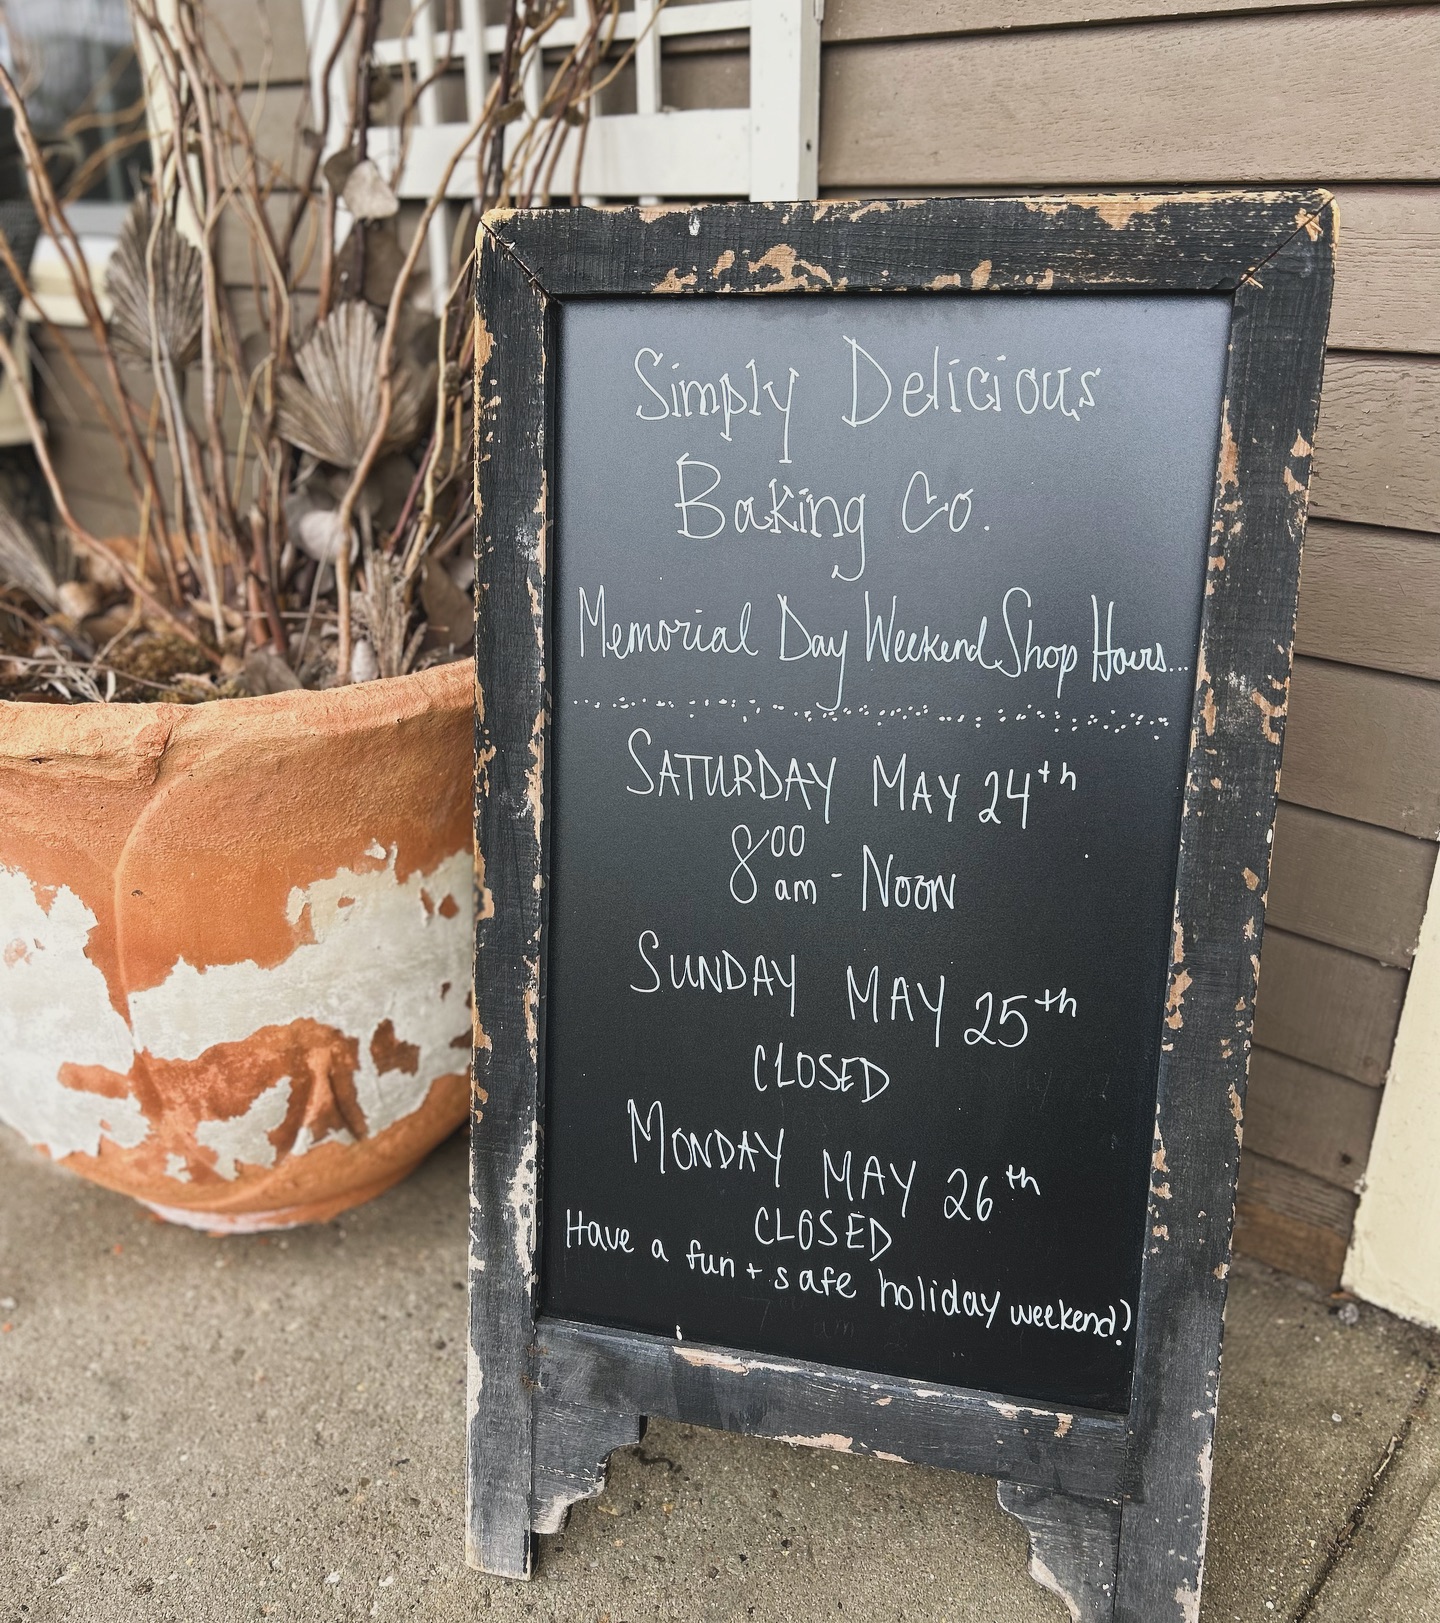 Simply Delicious
Baking Co.
Memorial Day Weekend Shop Hours...
SATURDAY MAY 24th
8:00 am - NOON
SUNDAY MAY 25th
CLOSED
MONDAY MAY 26th
CLOSED
Have a fun + safe holiday weekend!